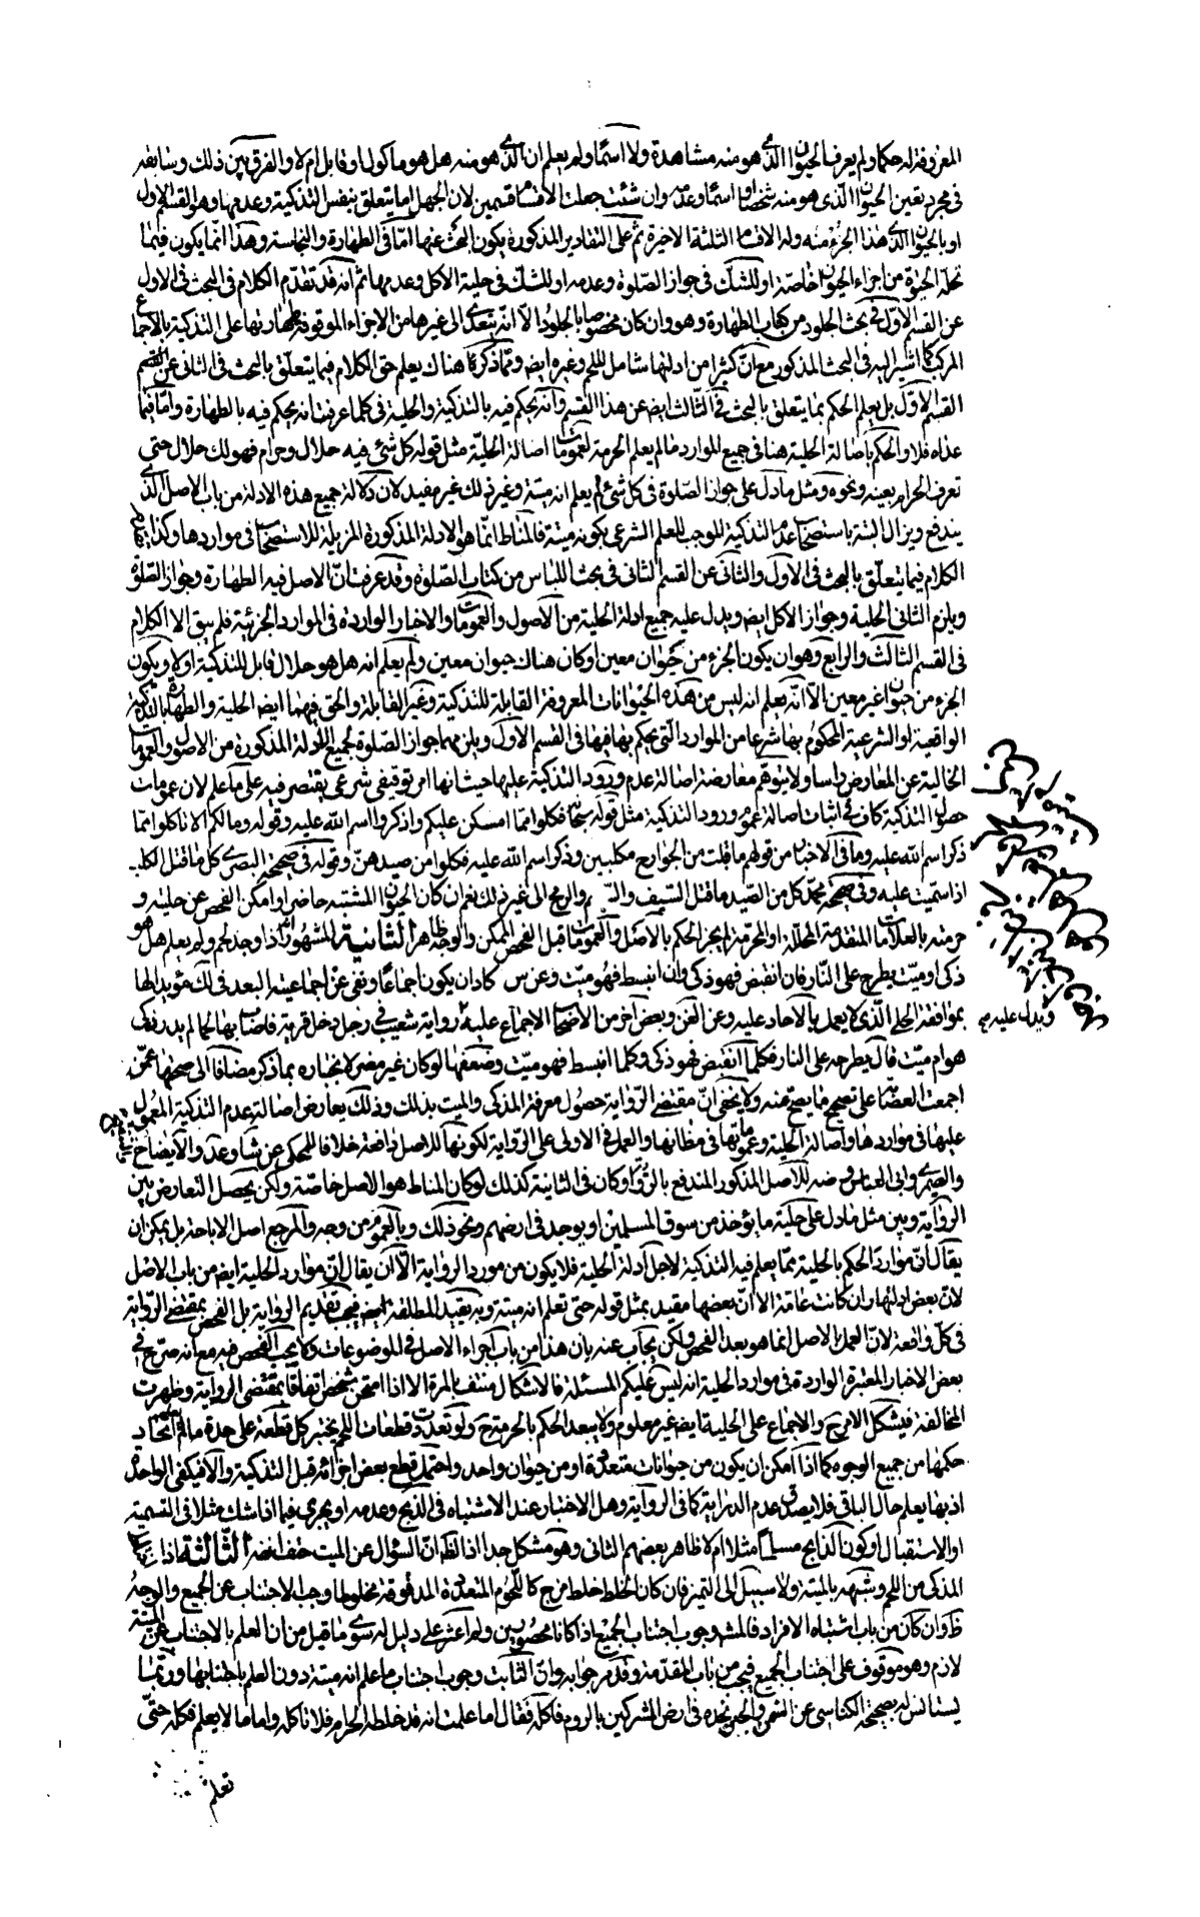 المعروفة له حكما ولم يعرف الحيوان الذي هو منه مشاهدة ولا اسما ولم يعلم ان الذي هو منه هل هو مأكول او قابل ام لا والفرق بين ذلك وسابقه
في مجرد تعين الحيوان الذي هو منه شخصا او اسما وعدمه وان شئت جعلت الاقسام قسمين لان الجهل اما يتعلق بنفس التذكية وعدمها وهو القسم الاول
او بالحيوان الذي هذا الجزء منه وله الاقسام الثلثة الاخيرة ثم على التقادير المذكورة يكون البحث عنها امّا في الطهارة والنجاسة وهذا انما يكون فيما
تحله الحيوة من اجزاء الحيوان خاصّة او للشك في جواز الصّلوة وعدمه او للشك في حلية الاكل وعدمها ثم انه قد تقدّم الكلام في البحث في الاول
عن القسم الاوّل في بحث الجلود من كتاب الطهارة وهو وان كان مخصوصا بالجلود الا انّه يتعدى الى غيرها من الاجزاء الموقوفة طهارتها على التذكية بالاجماع
المركب كما اشير اليه في البحث المذكور مع انّ كثيرا من ادلتها شامل للحم وغيره ايض وممّا ذكر كما هناك يعلم حق الكلام فيما يتعلق بالبحث في الثاني عن القسم
القسم الاوّل بل يعلم الحكم بما يتعلق بالبحث في الثّالث ايض عن هذا القسم وانّه يحكم فيه بالتذكية والحلية في كلما عرفت انه يحكم فيه بالطهارة وامّا فيما
عداه فلا والحكم باصالة الحلية هنا في جميع الموارد ما لم يعلم الحرمة لعمومات اصالة الحليّة مثل قوله كل شئ فيه حلال وحرام فهو لك حلال حتى
تعرف الحرام بعينه ونحوه ومثل ما دلّ على جواز الصّلوة في كل شئ لم يعلم انه ميتة وغير ذلك غير مفيد لان دلالة جميع هذه الادلة من باب الاصل الذي
يندفع ويزال البتة باستصحاب عدم التذكية الموجب للعلم الشرعي بكونه ميتة فالمناط انما هو الادلة المذكورة المزيلة للاستصحاب في مواردها وكذا تقدم
الكلام فيما يتعلّق بالبحث في الاول والثاني عن القسم الثاني في بحث اللباس من كتاب الصّلوة وقد عرفت انّ الاصل فيه الطهارة وجواز الصّلوة
ويلزم الثاني الحلية وجواز الاكل ايض ويدل عليه جميع ادلة الحلية من الاصول والعمومات والاخبار الواردة في الموارد الجزئية فلم يبق الا الكلام
في القسم الثالث والرابع وهو ان يكون الجزء من حيوان معين او كان هناك حيوان معين ولم يعلم انه هل هو حلال قابل للتذكية او لا ويكون
الجزء من حيوان غير معين الا انّه يعلم انه ليس من هذه الحيوانات المعروفة القابلة للتذكية وغير القابلة والحق فيهما ايض الحلية والطهارة بالتذكية
الواقعية او الشرعية المحكوم بها شرعا من الموارد التي يحكم بها فيها في القسم الاول ويلزمهما جواز الصّلوة لجميع الادلة المذكورة من الاصول والعمومات
الخالية عن المعارض راسا ولا يتوهم معارضة اصالة عدم ورود التذكية عليها حيث انها امر توقيفي شرعي يقتصر فيه على ما علم لان عمومات
حصول التذكية كاف في اثبات اصالة عموم ورود التذكية مثل قوله سبحانه فكلوا مما امسكن عليكم واذكروا اسم الله عليه وقوله وما لكم الا تاكلوا مما
ذكر اسم الله عليه وما في الاخبار من قولهم ما قتلت من الجوارح مكلبين وذكر اسم الله عليه فكلوا من صيدهنّ وقوله في صحيحة البصري كل ما قتل الكلب
اذا سميت عليه وفي صحيحة محمّد كل من الصّيد ما قتل السّيف والسهم والرمح الى غير ذلك نعم ان كان الحيوان المشتبه حاضرا وامكن الفحص عن حليته و
حرمته بالعلامات المتقدمة المحللة او المحرمة لم يجز الحكم بالاصل والعمومات قبل الفحص الممكن والوجه ظاهر الثانية المشهور انه اذا وجد لحم ولم يعلم هل هو
ذكي او ميت يطرح على النّار فان انقبض فهو ذكي وان انبسط فهو ميت وعن س كاد ان يكون اجماعا ونفى عن اجماعيته البعد في لك مؤيدا لها
بموافقة الحلي الّذي لا يعمل بالآحاد عليه وعن الغن وبعض آخر من الاصحاب الاجماع عليه لرواية شعيب في رجل دخل قرية فاصاب بها لحما لم يدر ذكي
هو ام ميت قال يطرحه على النار فكلما انقبض فهو ذكي وكلما انبسط فهو ميت وضعفها لو كان غير مضر لانجباره بما ذكر مضافا الى صحتها عمّن
اجمعت العصابة على تصحيح ما يصح عنه ولا يخفى انّ مقتضى الرّواية حصول معرفة المذكى والميت بذلك وذلك يعارض اصالة عدم التذكية المعمول
عليها في مواردها واصالة الحلية وعموماتها في مظانها والعمل في الاولى على الرّواية لكونها للاصل دافعة خلافا للمحكي عن شا وعد والايضاح
والصيمري وابي العباس وضه للاصل المذكور المندفع بالرّواية وكان في الثانية كذلك لو كان المناط هو الاصل خاصّة ولكن يحصل التعارض بين
الرواية وبين مثل ما دل على حلية ما يؤخذ من سوق المسلمين او يوجد في ارضهم ونحو ذلك وبالعموم من وجه والمرجع اصل الاباحة بل يمكن ان
يقال انّ موارد الحكم بالحلية ممّا يعلم فيه التذكية لاجل ادلة الحلية فلا يكون من مورد الرواية الّا ان يقال انّ موارد الحلية ايض من باب الاصل
لان بعض ادلتها وان كانت عامّة الا انّ بعضها مقيد بمثل قوله حتى تعلم انه ميتة وبه يقيد المطلقة ايض فيجب تقديم الرواية بل الفحص بمقتضى الرّواية
في كلّ واقعة لانّ العمل بالاصل انما هو بعد الفحص ولكن يجاب عنه بان هذا من باب اجراء الاصل في الموضوعات ولا يجب الفحص فيه مع انه صرّح في
بعض الاخبار المعتبرة الواردة في موارد الحلية انه ليس عليكم المسئلة فالاشكال منتف بالمرة الا اذا امتحن شخص اتفاقا بمقتضى الرواية وظهرت
المخالفة فيشكل الامر ح والاجماع على الحلية ايض غير معلوم ولا يبعد الحكم بالحرمة ح ولو تعددت قطعات اللحم يختبر كل قطعة على حدة ما لم يعلم اتحاد
حكمها من جميع الوجوه كما اذا امكن ان يكون من حيوانات متعددة او من حيوان واحد واحتمل قطع بعض اجزائه قبل التذكية والا فيكفي الواحدة
اذ بها يعلم حال الباقي فلا يصدق عدم الدراية كما في الرواية وهل الاختبار عند الاشتباه في الذبح وعدمه او يجري فيما اذا شك مثلا في التسمية
او الاستقبال او كون الذابح مسلما مثلا ام لا ظاهر بعضهم الثاني وهو مشكل جدا اذ الظ انّ السؤال عن الميت حتف انفه الثّالثة اذا
المذكى من اللحم وشبهه بالميتة ولا سبيل الى التميز فان كان الخلط خلط مزج كاللحوم المتعددة المدقوقة مخلوطا وجب الاجتناب عن الجميع والوجه
ظ وان كان من باب اشتباه الافراد فالمشهور وجوب اجتناب الجميع اذا كانا محصورين ولم اعثر على دليل له سوى ما قيل من ان العلم بالاجتناب عن الميتة
لازم وهو موقوف على اجتناب الجميع فيجب من باب المقدّمة وقد مر جوابه وانّ الثابت وجوب اجتناب ما علم انه ميتة دون العلم باجتنابها وربّما
يستانس له بصحيحة الكناسي عن السّمن والجبن نجده في ارض المشركين بالروم فاكله فقال اما ما علمت انه قد خلطه الحرام فلا تاكله واما ما لا يعلم فكله حتّى
تعلم
ويدل عليه